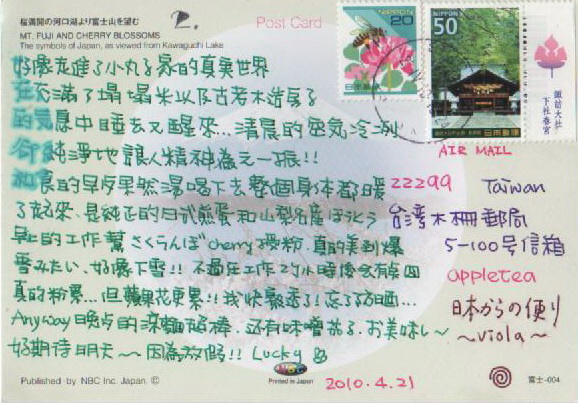 桜満開の河口湖より富士山を望む
MT. FUJI AND CHERRY BLOSSOMS
The symbols of Japan, as viewed from Kawaguchi Lake
Post Card
NIPPON
20
日本郵便
NIPPON
50
日本郵便
諏訪大社
下社春宮
好像走進了小丸子家的真實世界
在充滿了榻榻米以及古老木造房子
的氣息中睡去又醒來...清晨的空氣冷冽
卻純淨地讓人精神為之一振!!
和食的早餐果然湯喝下去整個身体都暖
了起來、是純正的日式煎蛋和山梨名産ほうとう
早上的工作幫さくらんぼcherry授粉、真的美到爆
雪みたい、好像下雪!! 不過在工作2小時後会有点
真的粉累...但蘋果花更累!! 我快飄透了! 忘了防曬...
Anyway 晚点的超棒、还有味噌茄子、お美味し〜
好期待明天〜因為放假!! Lucky
AIR MAIL
22299 Taiwan
台湾木柵郵局
5-100号信箱
appletea
日本からの便り
〜viola〜
2010.4.21
Published by NBC Inc. Japan. ©
Printed in Japan
富士-004